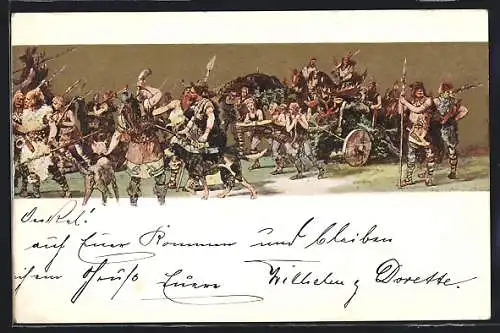 Onkel!
auf Euer Kommen und bleiben
ein Gruß Euere Wilhelm & Dorette.